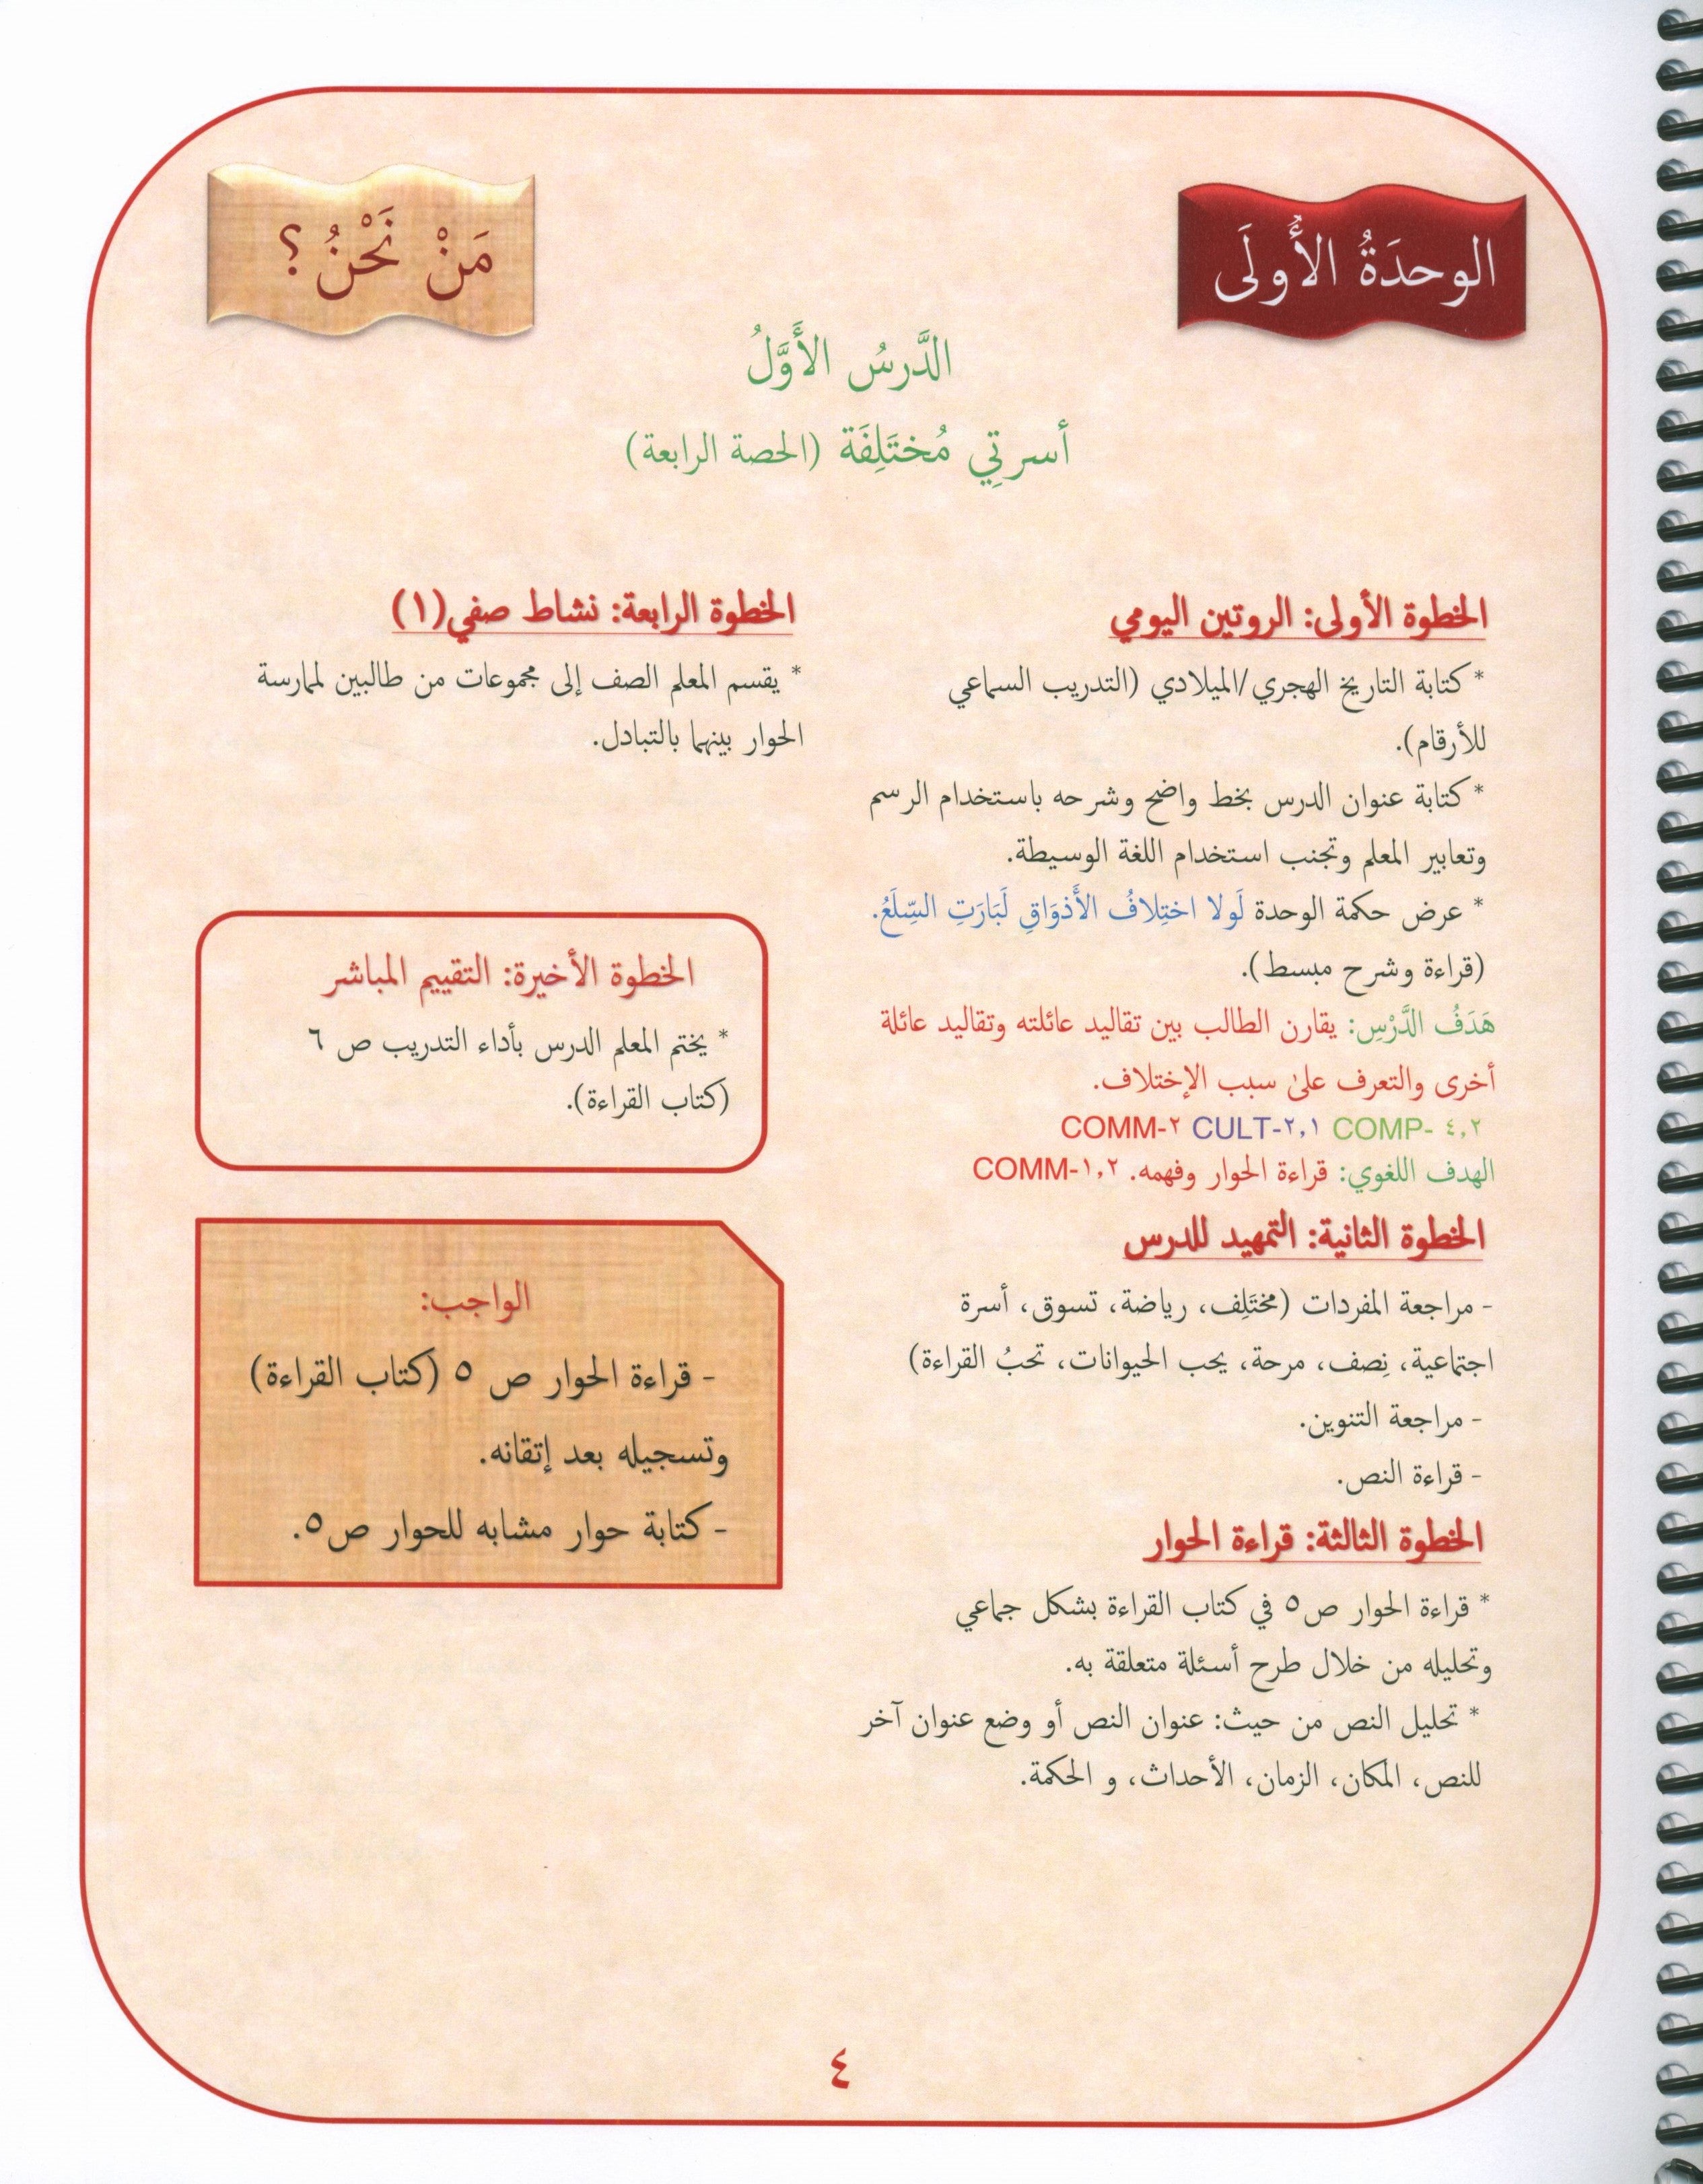 الوحدَةُ الأُولَى
مَنْ نَحْنُ؟
الدَّرسُ الأَوَّلُ
أسرتِي مُختَلِفَة (الحصة الرابعة)
الخطوة الأولى: الروتين اليومي
* كتابة التاريخ الهجري/الميلادي (التدريب السماعي
للأرقام).
* كتابة عنوان الدرس بخط واضح وشرحه باستخدام الرسم
وتعابير المعلم وتجنب استخدام اللغة الوسيطة.
* عرض حكمة الوحدة لَولا اختِلافُ الأَذوَاقِ لَبَارَتِ السِّلَعُ.
(قراءة وشرح مبسط).
هَدَفُ الدَّرْسِ: يقارن الطالب بين تقاليد عائلته وتقاليد عائلة
أخرى والتعرف على سبب الإختلاف.
COMM-٢ CULT-٢,١ COMP- ٤,٢
الهدف اللغوي: قراءة الحوار وفهمه. COMM-١,٢
الخطوة الثانية: التمهيد للدرس
- مراجعة المفردات (مختَلِف، رياضة، تسوق، أسرة
اجتماعية، نِصف، مرحة، يحب الحيوانات، تحبُ القراءة)
- مراجعة التنوين.
- قراءة النص.
الخطوة الثالثة: قراءة الحوار
* قراءة الحوار ص٥ في كتاب القراءة بشكل جماعي
وتحليله من خلال طرح أسئلة متعلقة به.
* تحليل النص من حيث: عنوان النص أو وضع عنوان آخر
للنص، المكان، الزمان، الأحداث، و الحكمة.
الخطوة الرابعة: نشاط صفي(١)
* يقسم المعلم الصف إلى مجموعات من طالبين لممارسة
الحوار بينهما بالتبادل.
الخطوة الأخيرة: التقييم المباشر
* يختم المعلم الدرس بأداء التدريب ص ٦
(كتاب القراءة).
الواجب:
- قراءة الحوار ص ٥ (كتاب القراءة)
وتسجيله بعد إتقانه.
- كتابة حوار مشابه للحوار ص٥.
٤